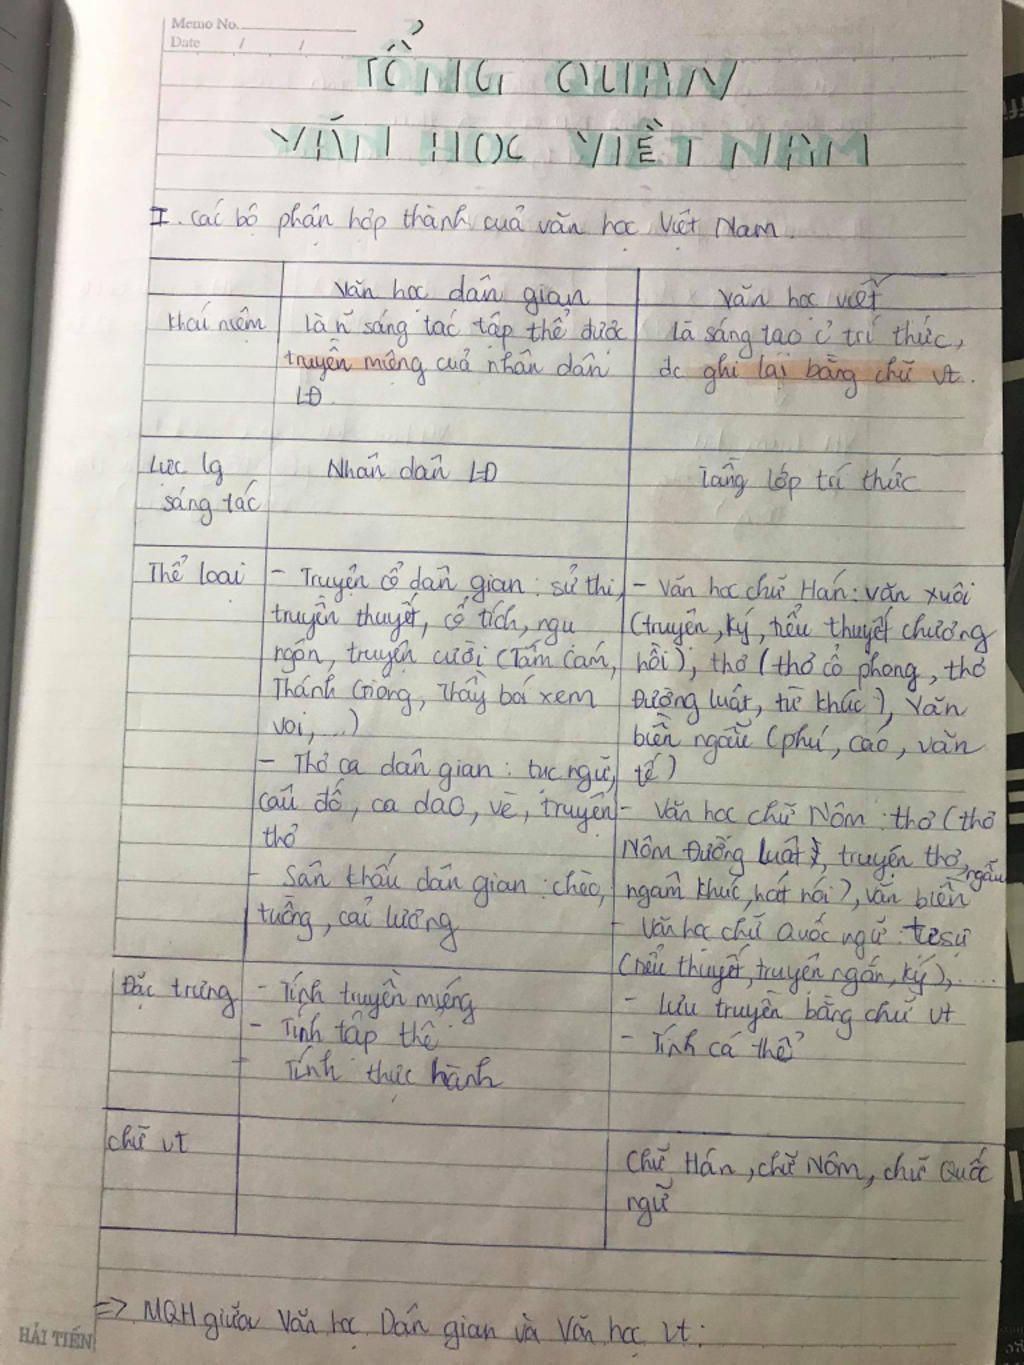 Memo No.
Date / /
TỔNG QUAN
VĂN HỌC VIỆT NAM
I. Các bộ phận hợp thành của văn học Việt Nam.
Văn học dân gian
Văn học viết
Khái niệm
là ~ sáng tác tập thể được
truyền miệng của nhân dân
LĐ.
là sáng tạo c̉ trí thức,
đc ghi lại bằng chữ vt.
Lực lg
sáng tác
Nhân dân LĐ
Tầng lớp trí thức
Thể loại
- Truyện cổ dân gian: sử thi,
truyền thuyết, cổ tích, ngụ
ngôn, truyện cười (Tấm Cám,
Thánh Gióng, Thầy bói xem
voi,...)
- Thơ ca dân gian: tục ngữ,
câu đố, ca dao, vè, truyện
thơ
- Sân khấu dân gian: chèo,
tuồng, cải lương
- Văn học chữ Hán: văn xuôi
(truyện, ký, tiểu thuyết chương
hồi), thơ (thơ cổ phong, thơ
Đường luật, từ khúc), Văn
biền ngẫu (phú, cáo, văn
tế)
- Văn học chữ Nôm: thơ (thơ
Nôm Đường luật, truyện thơ,
ngâm khúc, hát nói), văn biền ngẫu
- Văn học chữ Quốc ngữ: tự sự
(tiểu thuyết, truyện ngắn, ký),....
Đặc trưng
- Tính truyền miệng
- Tính tập thể
- Tính thực hành
- Lưu truyền bằng chữ vt
- Tính cá thể
Chữ vt
Chữ Hán, chữ Nôm, chữ Quốc
ngữ
=> MQH giữa Văn học Dân gian và Văn học vt:
HẢI TIẾN